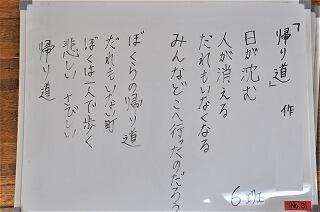 「帰り道」 作
日が沈む
人が消える
だれもいなくなる
みんなどこへ行ったのだろう
ぼくらの帰り道
だれもいない町
ぼくは一人で歩く
悲しい さびしい
帰り道
6班
No.3